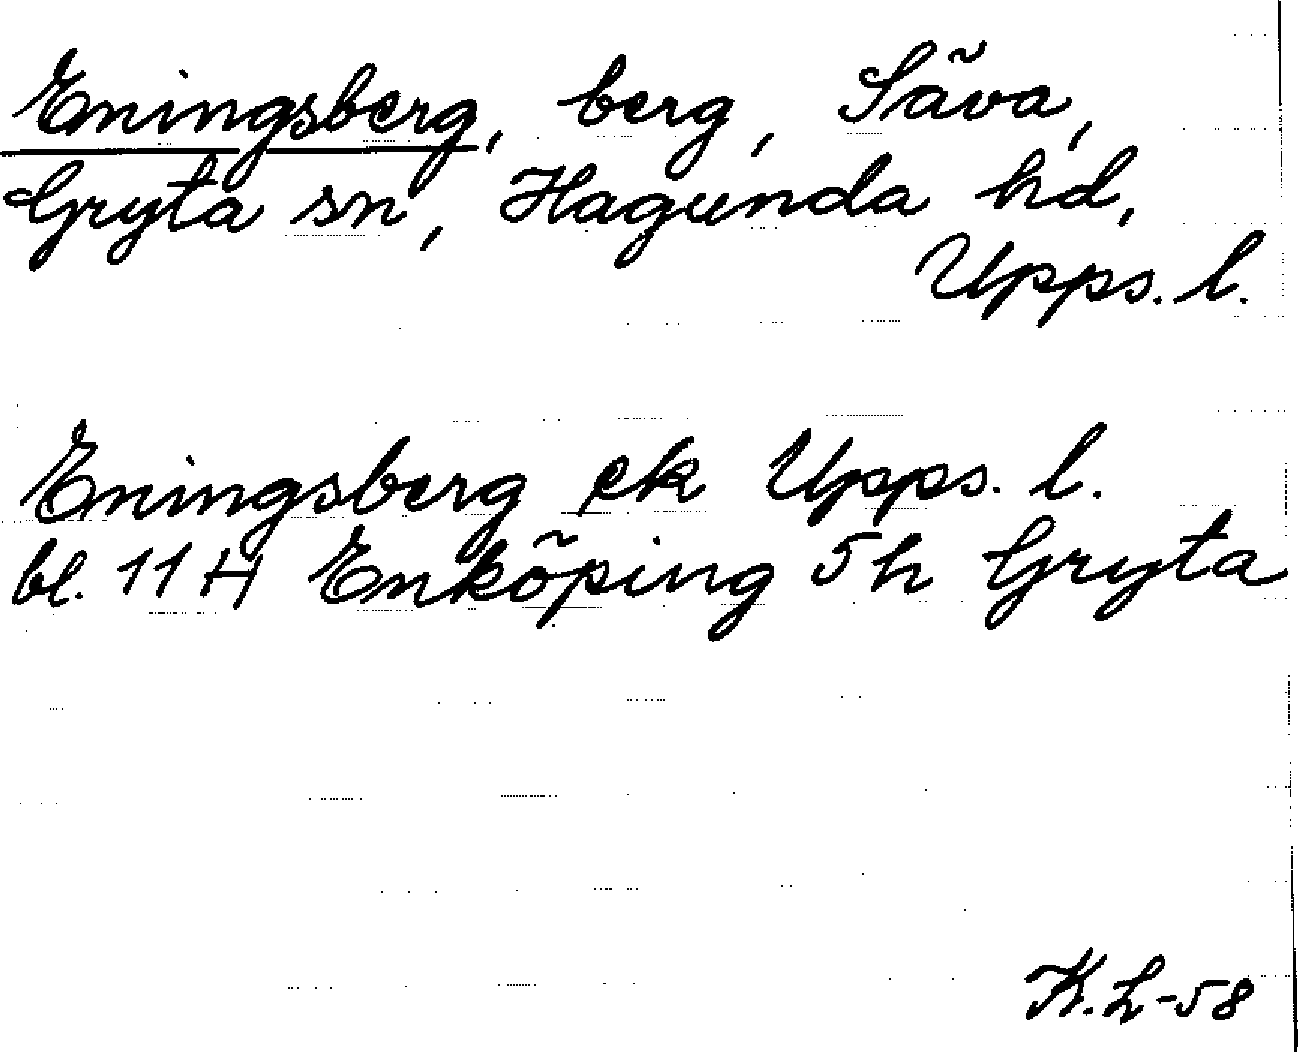 Eningsberg, berg, Säva,
Gryta sn, Hagunda hd,
Upps. l.
Eningsberg ek Upps. l.
bl. 11 H Enköping 5h Gryta
K.L-58